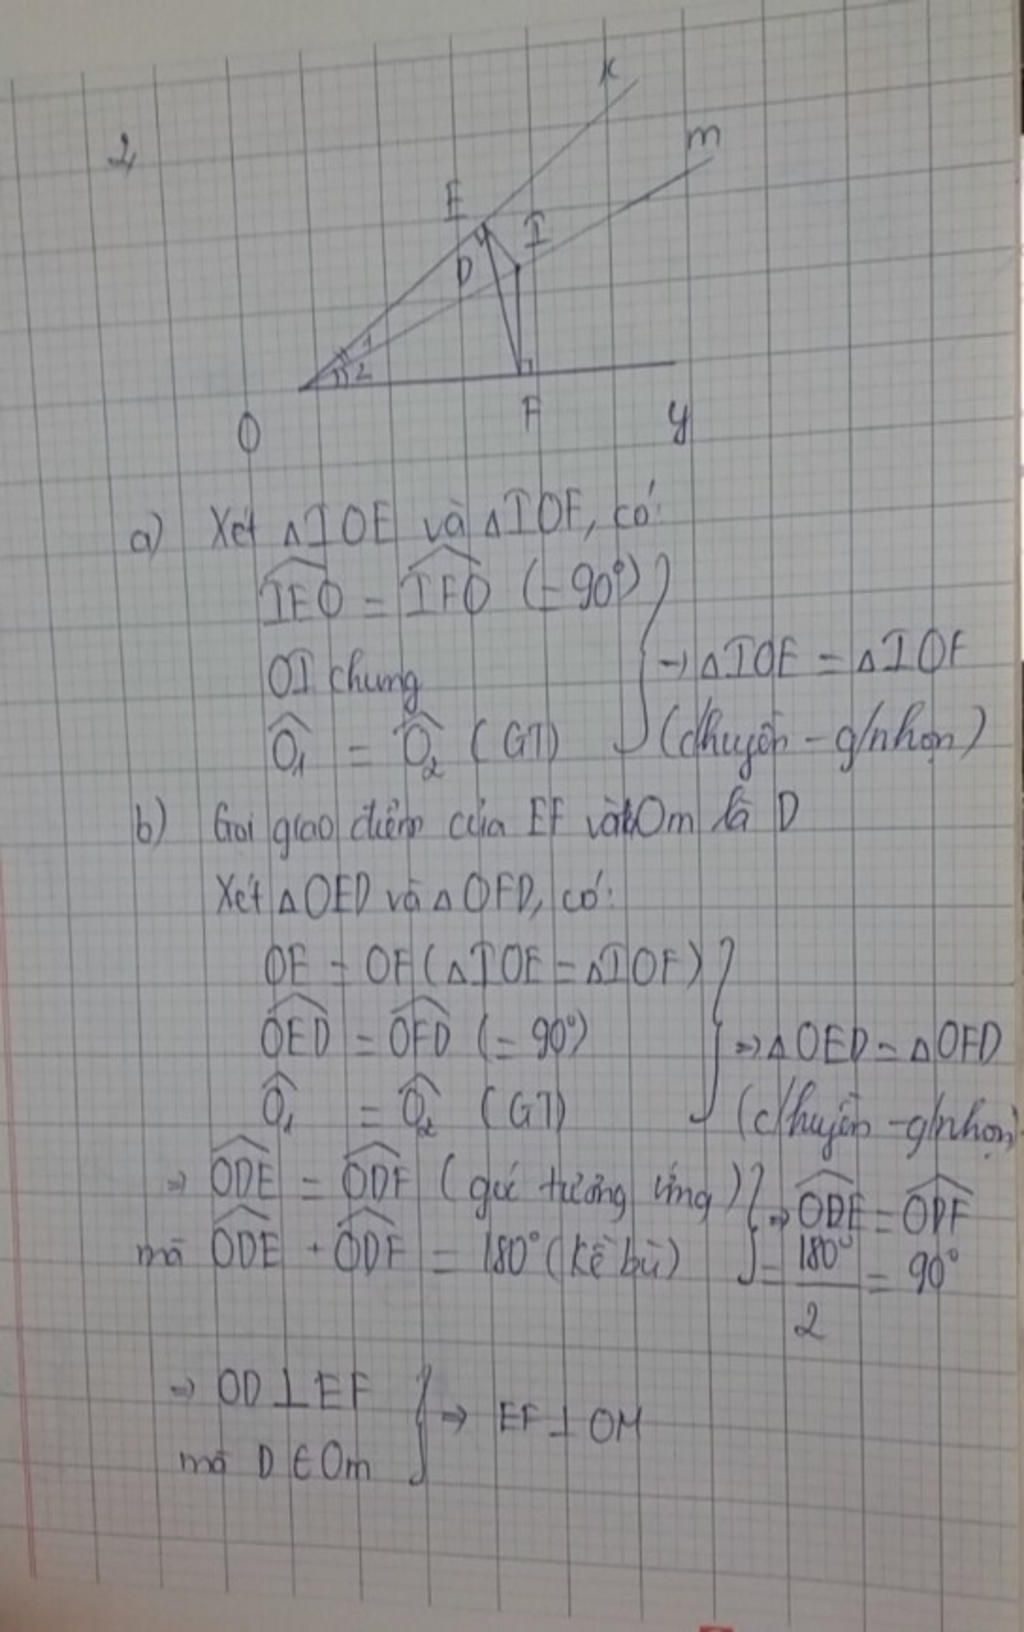 2,
x
m
E
I
D
1
2
O
F
y
a) Xét ΔIOE và ΔIOF, có:
$\widehat{IEO}$ = $\widehat{IFO}$ (= 90°)
OI chung
→ ΔIOE = ΔIOF
$\widehat{O_1}$ = $\widehat{O_2}$ (GT)
(c/huyền - g/nhọn)
b) Gọi giao điểm của EF và Om là D
Xét ΔOED và ΔOFD, có:
OE = OF (ΔIOE = ΔIOF)
$\widehat{OED}$ = $\widehat{OFD}$ (= 90°)
⇒ ΔOED = ΔOFD
$\widehat{O_1}$ = $\widehat{O_2}$ (GT)
(c/huyền - g/nhọn)
⇒ $\widehat{ODE}$ = $\widehat{ODF}$ (góc tương ứng)
⇒ $\widehat{ODE}$ = $\widehat{ODF}$
mà $\widehat{ODE}$ + $\widehat{ODF}$ = 180° (kề bù)
= 180°/2 = 90°
⇒ OD ⊥ EF
⇒ EF ⊥ OM
mà D ∈ Om